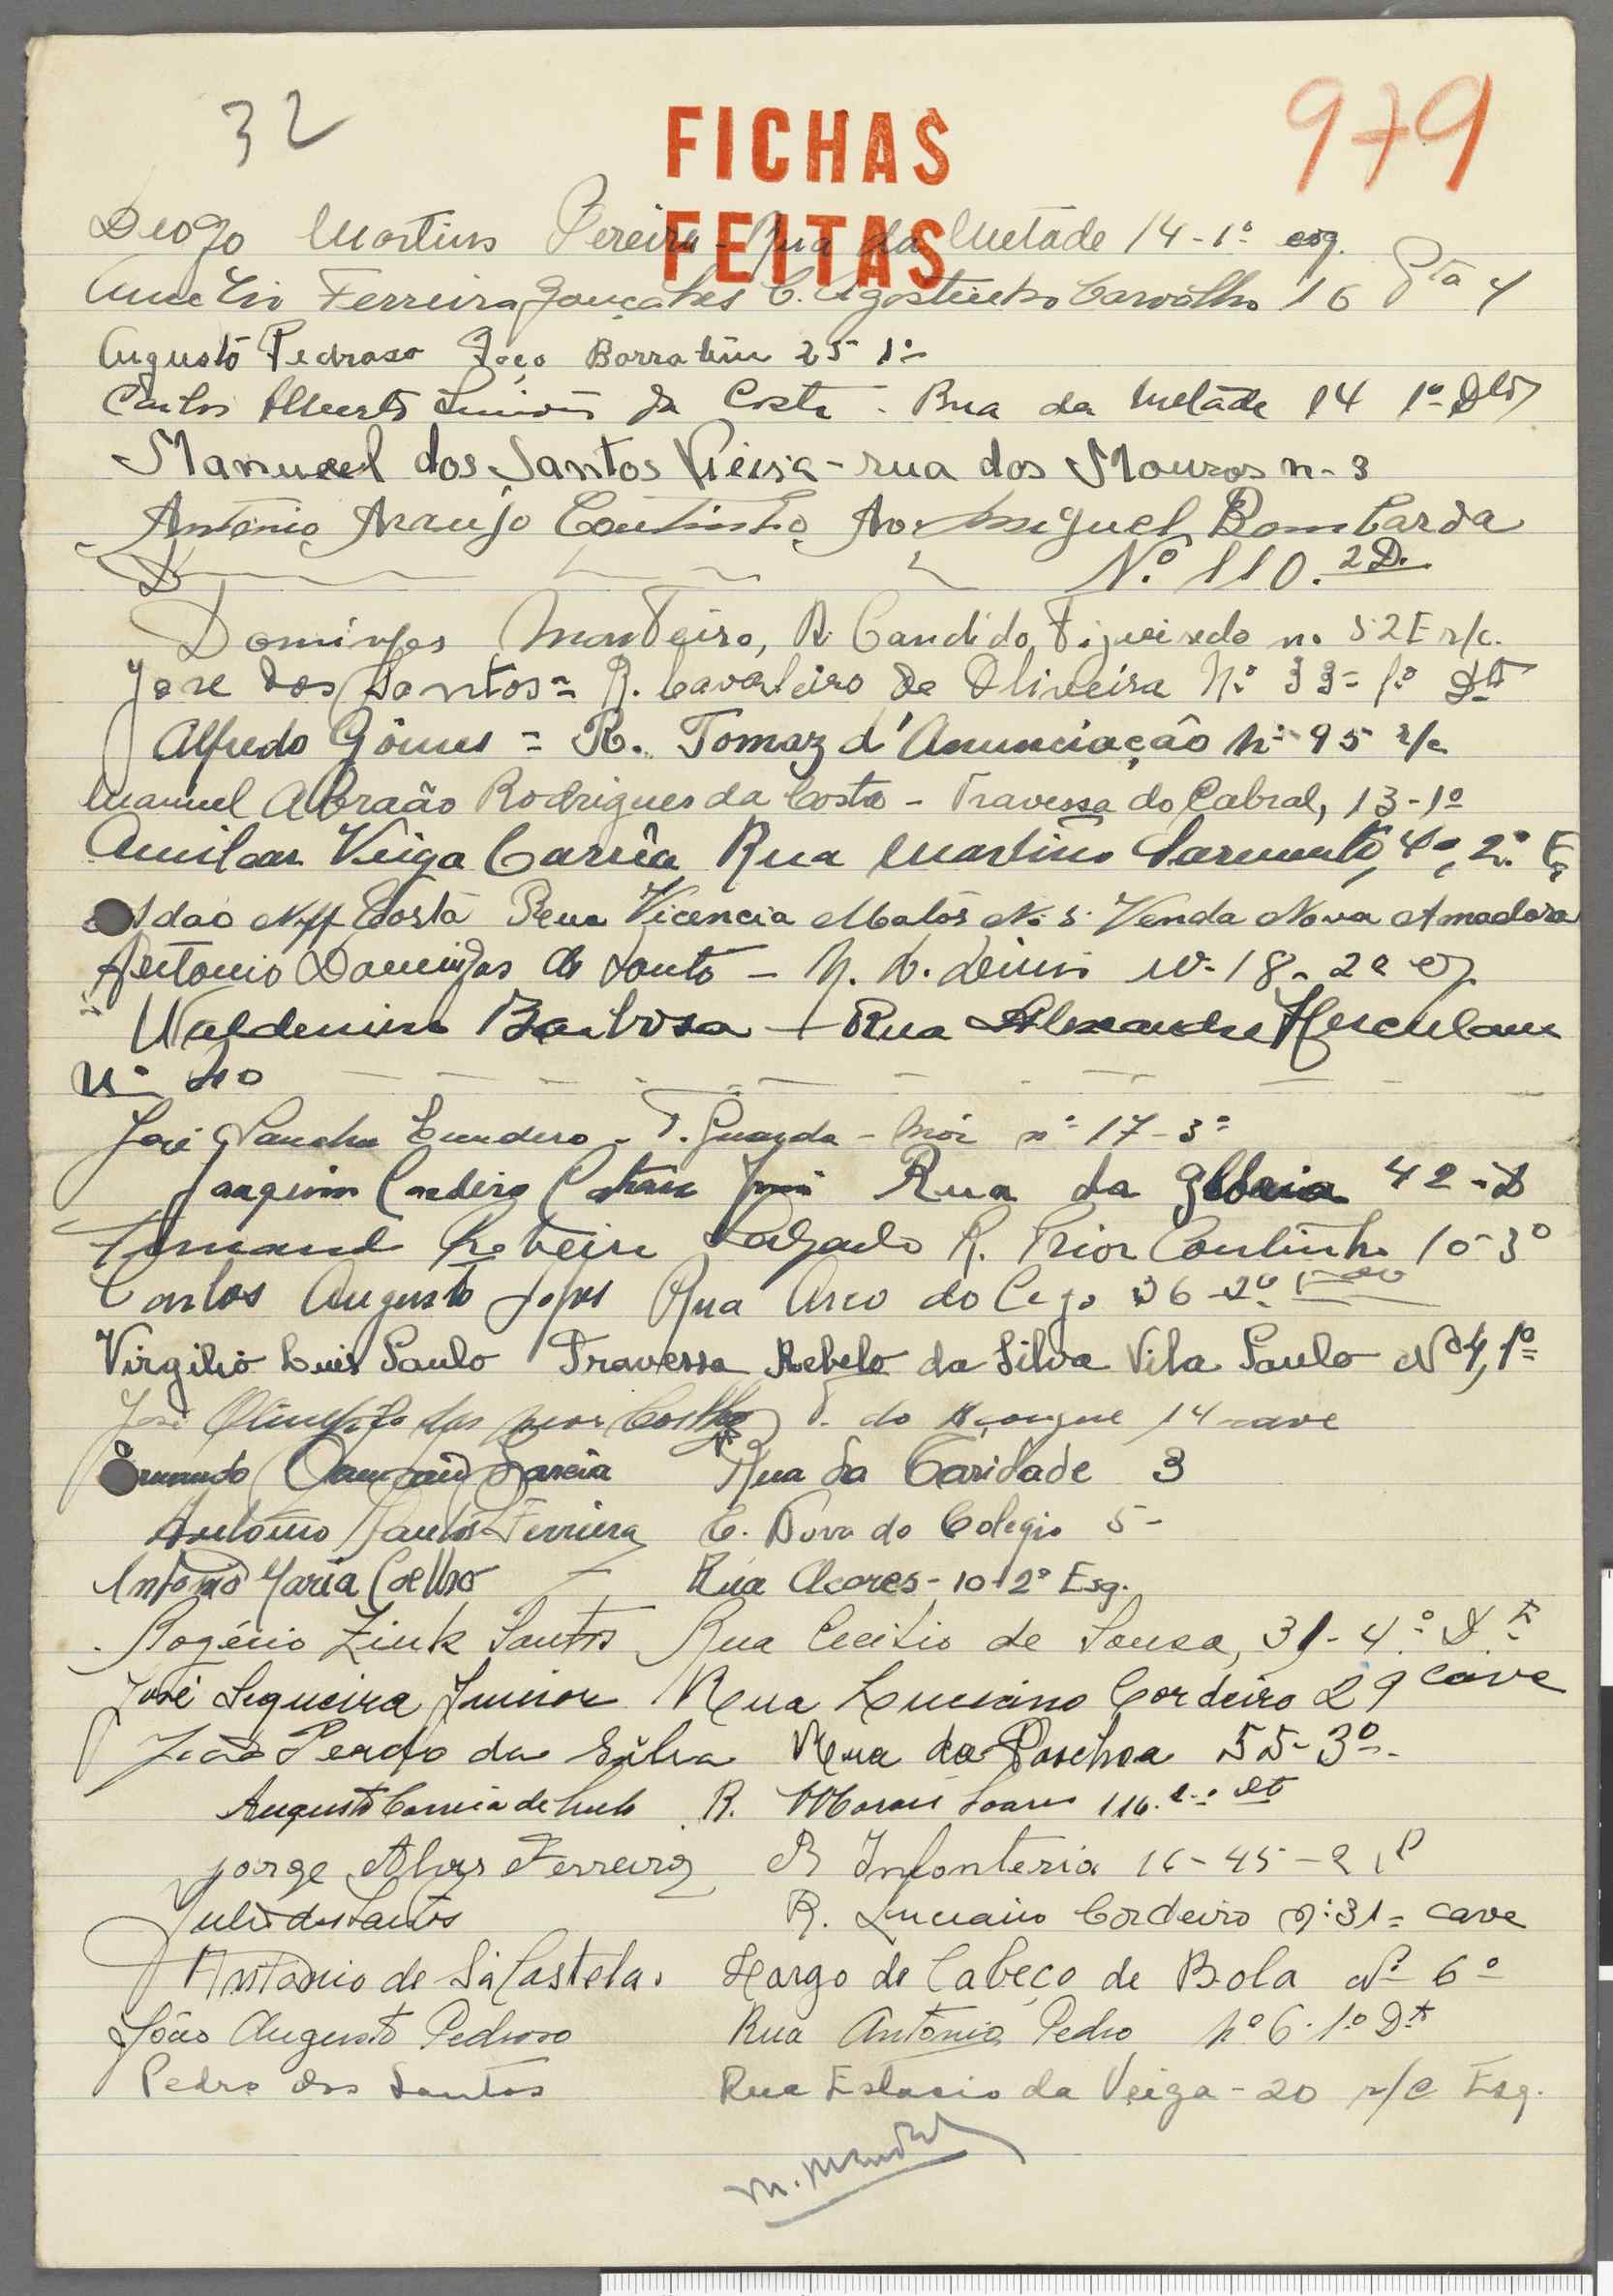 32
979
FICHAS
FEITAS
Diogo Martins Pereira - Rua da Metade 14-1º esq.
Aurelio Ferreira Gonçalves C. Agostinho Carvalho 16 Pta 4
Augusto Pedroso Beco Barralém 25 1º
Carlos Alberto da Costa - Rua da Metade 14 1º Dto
Manuel dos Santos Vieira - rua dos Mouros n- 3
António Araujo Coutinho Av Miguel Bombarda
Nº 110. 2D.
Domingos Monteiro, R. Candido Figueiredo no 52E r/c.
Jose dos Santos = R. Cavaleiro de Oliveira Nº 33 = 1º Dtº
Alfredo Gômes = R. Tomaz d'Anunciação Nº 95 r/c
Manuel Abraão Rodrigues da Costa - Travessa do Cabral, 13-1º
Amilcar Veiga Rua Martins Sarmento, 2º
Costa Rua Vicencia Matos No 5. Venda Nova Amadora
Antonio Domingos de Souto - 18 - 2º
Valdemiro Barbosa - Rua Alexandre Herculano
Nº 40
José - T. Guarda-Mór nº 17-3º
Joaquim Rua da Gloria 42-D
Armand Ribeiro Salgado R. Prior Coutinho 10-3º
Carlos Augusto Lopes Rua Arco do Cego 36-2º
Virgilio Luis Paulo Travessa Rebelo da Silva Vila Paulo Nº 4, 1º
José T. do Açougue 14 cave
Garcia Rua da Caridade 3
Antonio Santos Ferreira C. Nova do Colegio 5-
Antonio Maria Coelho - Rua Açores - 10-2º Esq.
Rogério Zink Santos Rua Cecilio de Sousa, 31-4º Dtº
José Sequeira Junior Rua Luciano Cordeiro 29 cave
João da Silva Rua da 55-3º-
Augusto Correia de R. Morais Soares 116.
Jorge Alves Ferreira R Infanteria 16-45-2
Julio dos Santos R. Luciano Cordeiro nº 31 = cave
Antonio de Sá Castela. Largo de Cabeço de Bola Nº 6º
João Augusto Pedroso Rua Antonio Pedro nº 6. 1º Dtº
Pedro dos Santos Rua Estacio da Veiga - 20 r/c Esq.